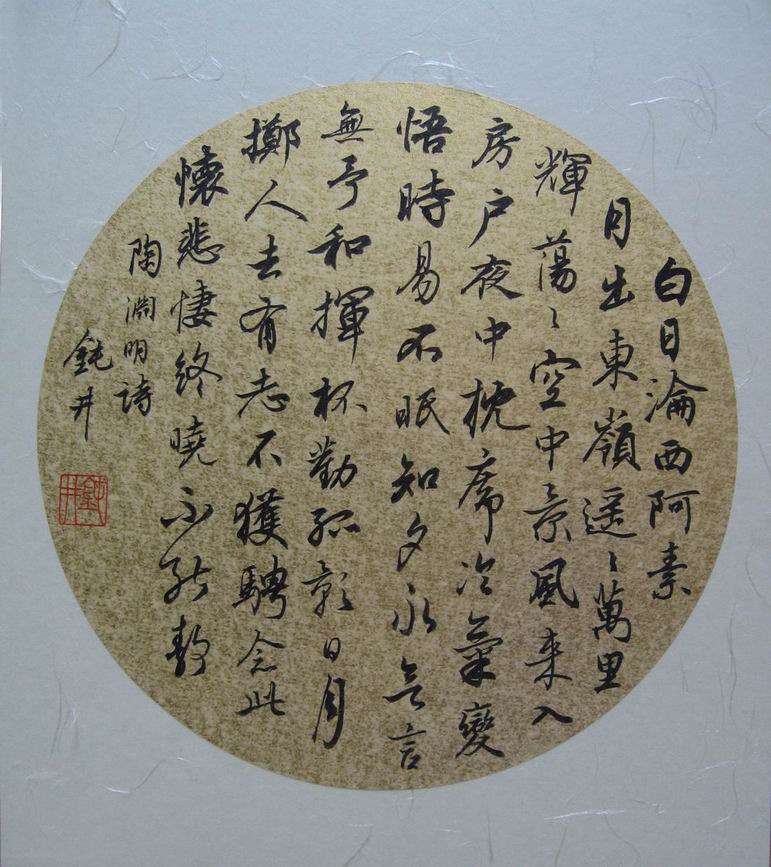 白日淪西阿素
月出東嶺遥〻萬里
輝蕩〻空中景風来入
房户夜中枕席冷氣變
悟時易不眠知夕永言
無予和揮杯勸孤影日月
擲人去有志不獲騁念此
懷悲悽終曉不能静
陶淵明詩
鈍井
鈍井